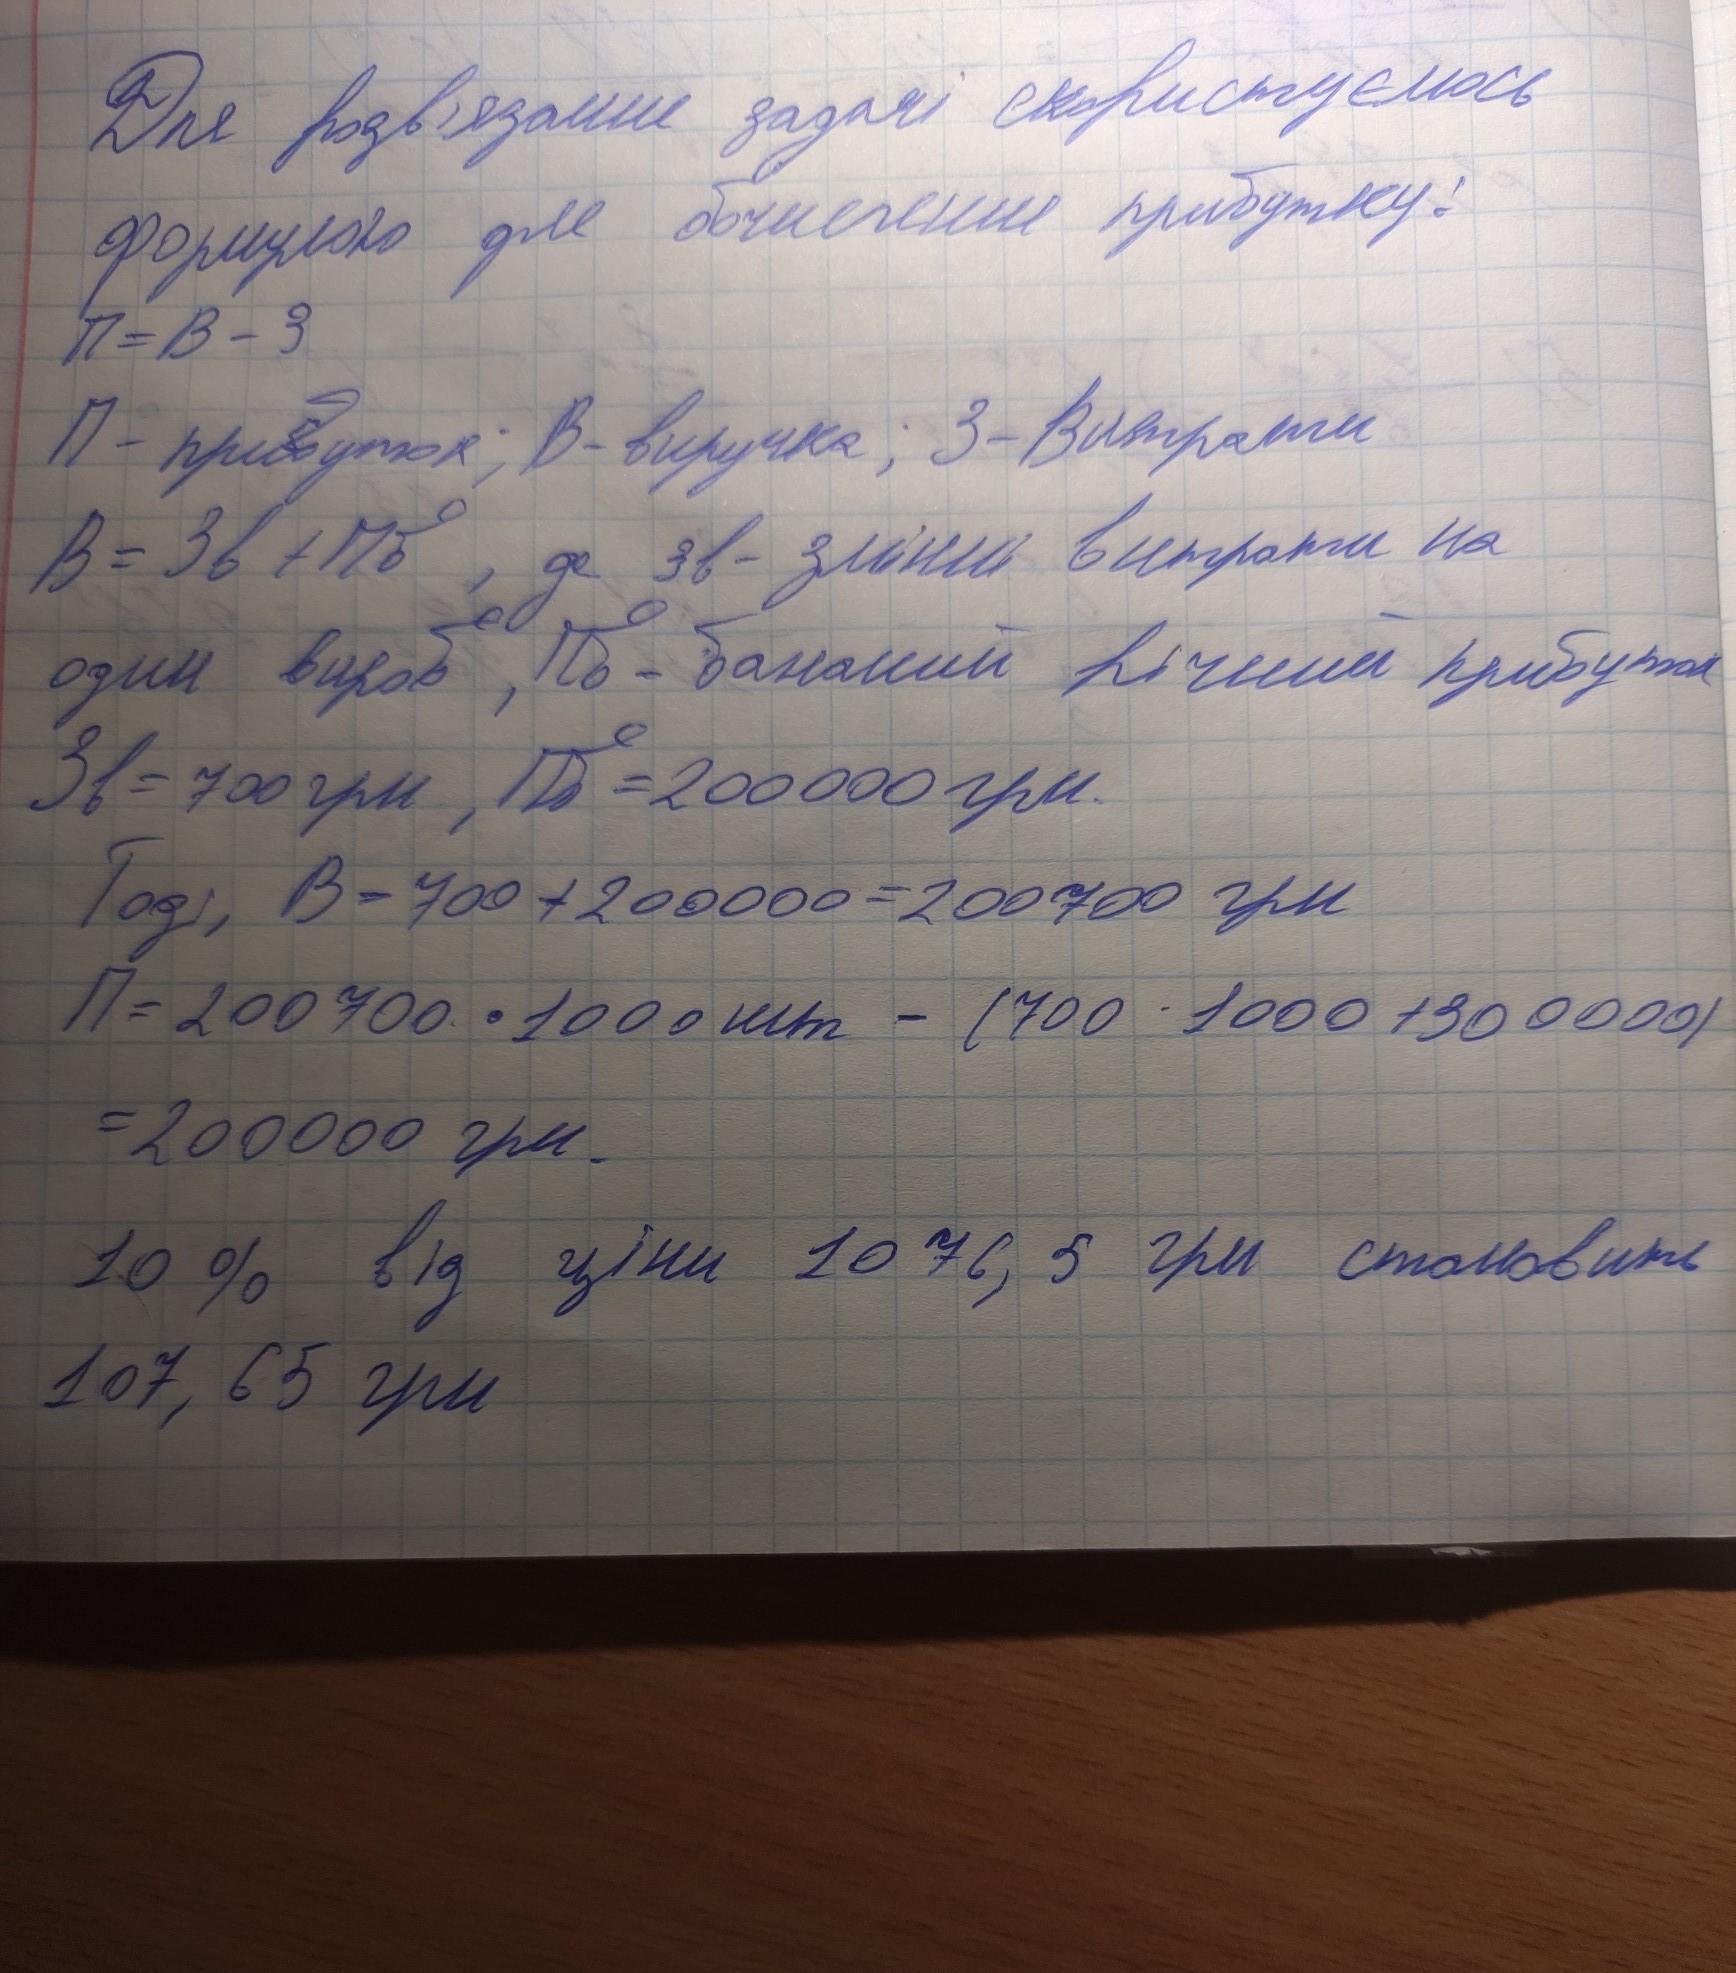 Для розв'язання задачі скористуємось
формулою для обчислення прибутку:
П = В - З
П - прибуток; В - виручка; З - Витрати
В = Зв + Пб, де Зв - змінні витрати на
один виріб, Пб - бажаний річний прибуток
Зв = 700 грн, Пб = 200000 грн.
Тоді, В = 700 + 200000 = 200700 грн
П = 200700 · 1000 шт - (700 · 1000 + 300000)
= 200000 грн.
10% від ціни 1076,5 грн становить
107,65 грн